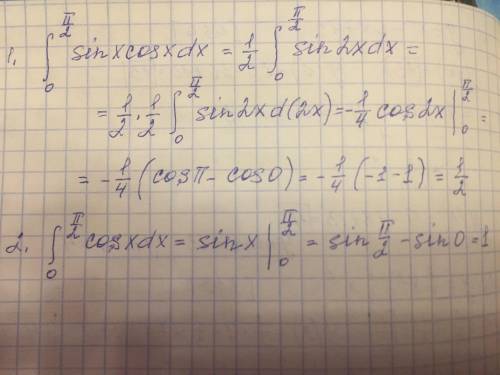 1. ∫₀^(π/2) sinxcosxdx = 1/2 ∫₀^(π/2) sin2xdx =
= 1/2 · 1/2 ∫₀^(π/2) sin2xd(2x) = -1/4 cos2x |₀^(π/2) =
= -1/4 (cosπ - cos0) = -1/4 (-1-1) = 1/2
2. ∫₀^(π/2) cosxdx = sinx |₀^(π/2) = sin π/2 - sin0 = 1